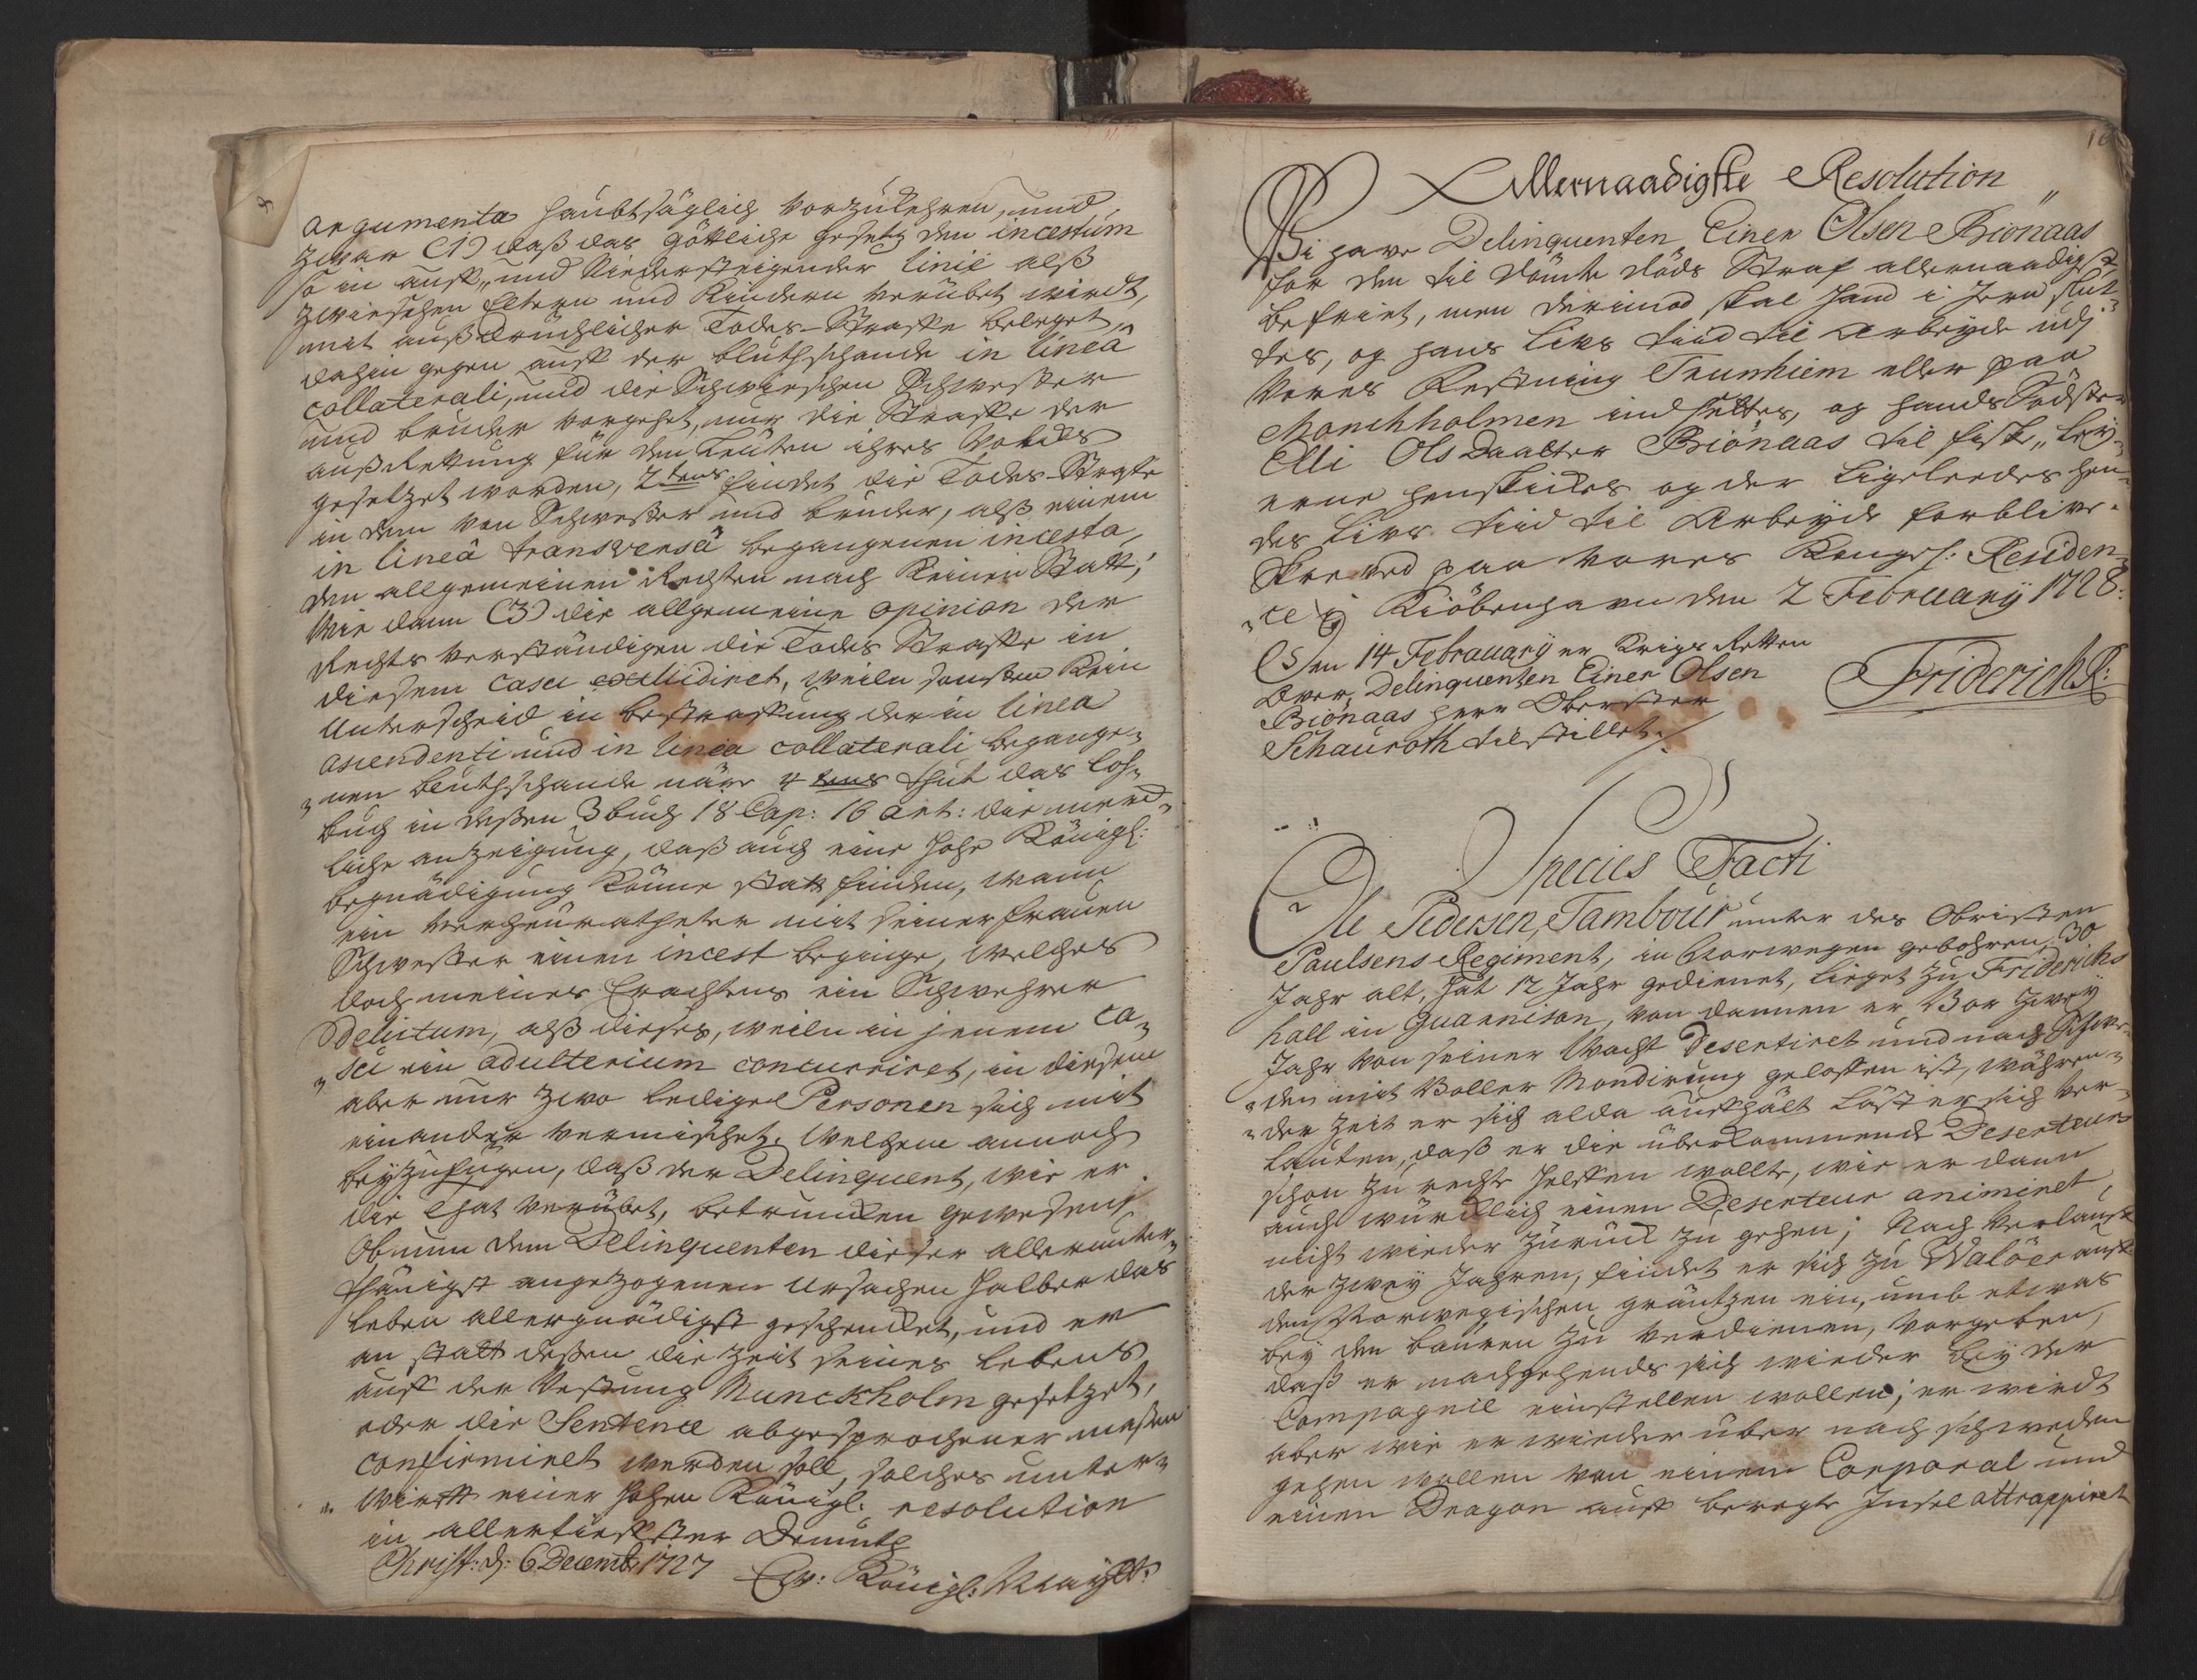 argumenta haubtsäglich vorzukehren, und
zwar (1) daß das göttliche gesetz den incestum
so in auff„ und Niedersteigender linie alß
zwieschen Eltern und Kindern verübet wirdt,
mit außdrücklicher Todes-Straffe beleget,
dahingegen auff der bluthschande in lineâ
collaterali, und die Schwieschen Schwester
und bruder vorgehet, nur die Straffe der
außRottung für den Leuten ihres Volcks
gesetzet worden, 2tens findet die Todes-Straffe
in dem von Schwester und bruder, alß einem
in lineâ transversâ begangenen incesta,
den allgemeinen Rechten nach keinen Statt;
Wie dann (3) die allgemeine opinion der
Rechts verständigen die Todes Straffe in
diesem casu excludiret, weiln sonsten kein
Unterscheid in bestraffung der in linea
ascendenti und in linea collaterali begange„
„nen bluthschande wäre 4tens thut das Loh„
buch in deßen 3 buch 18 Cap: 16 art: die merck„
liche anzeigung, daß auch eine hohe Königl:
begnädigung könne statt finden, wann
ein verheuratheter mit seiner frauen
Schwester einen incest beginge, welches
doch meines Erachtens ein Schwehrer
Delictum, alß dieses, weiln in jenem ca„
„su ein adulterium concurriret, in diesem
aber nur zwo ledige Personen sich mit
einander vermischet. Welchem annoch
beyzufügen, daß der Delinquent, wie er
die That verübet, betruncken gewesen.
Ob nun dem Delinquenten dieser allerunter„
thänigst angezogenen Ursachen halber das
Leben allergnädigst geschencket, und er
an statt deßen die Zeit seines Lebens
auff der Vestung Munckholm gesetzet,
oder die Sentence abgesprochener maßen
confirmiret werden soll, solches unter„
„wirfft einer hohen Königl: resolution
in allertieffster Demuth
Christ: d: 6 Decembr 1727 Ew: Königl: Mayst:
10
Allernaadigste Resolution
Wi have Delinquenten Einer Olsen Biönaas
for den til dömte döds Straf allernaadigst,
befriet, men derimod skal hand i Jern slut„
tes, og hans Livs tiid til Arbeyde udj
Vores Festning Trunhiem eller paa
Monchholmen indsettes, og hands Södster
Elli Ols Daatter Biönaas til fiske„ley„
erne henskickes og der ligeleedes hen„
des Livs tiid til Arbeyde forblive.
Skrevet paa Vores Kongel: Residen„
„ce i Kiöbenhavn den 2 February 1728.
Den 14 February er Krigs Retten
over Delinquenten Einer Olsen
Biönaas herr Oberster
Schauroth tilstillet.
Friderich R:
Species Facti
Ole Pedersen, Tambour unter des Obristen
Paulsens Regiment, in Norwegen gebohren, 30
Jahr alt, hat 12 Jahr gedienet, lieget zu Friderichs
hall in Guarnison, von dannen er Vor zwey
Jahr von seiner Wacht desertiret und nach Schwe„
„den mit Voller Mondirung geloffen ist, währen„
„der Zeit er sich alda auffhält läst er sich ver„
lauten, daß er die überkommende Deserteurs
schon zu recht helffen wollte, wie er dann
auch würcklich einen Deserteur animiret,
nicht wieder zurück zu gehen; Nach Verlauff
der zwey Jahren, findet er sich zu Walöer auff
den Norwegischen gräntzen ein, umb etwas
bey den bauren zu verdienen, vorgeben,
daß er nachgehends sich wieder bey der
Compagnie einstellen wollen; er wirdt
aber wie er wieder über nach Schweden
gehen wollen von einem Corporal und
einen Dragon auff beregte Insel attrappiret